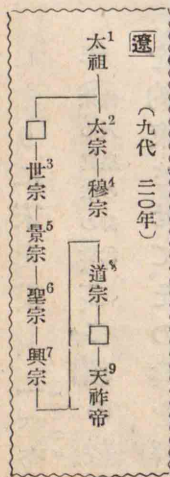 遼
（九代 二二〇年）
太祖1
太宗2 穆宗4
□ 世宗3 景宗5 聖宗6 興宗7
道宗8 □ 天祚帝9